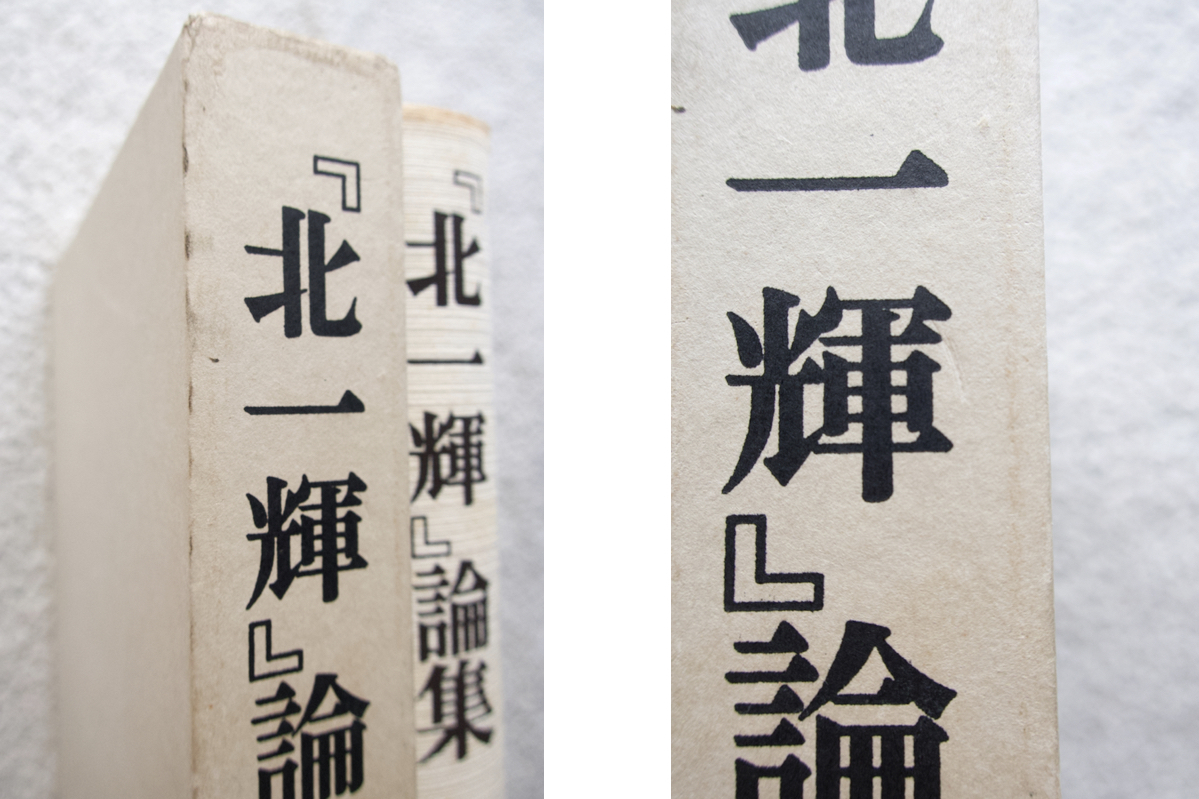 『北一輝』論
『北一輝』論集
北一輝』論